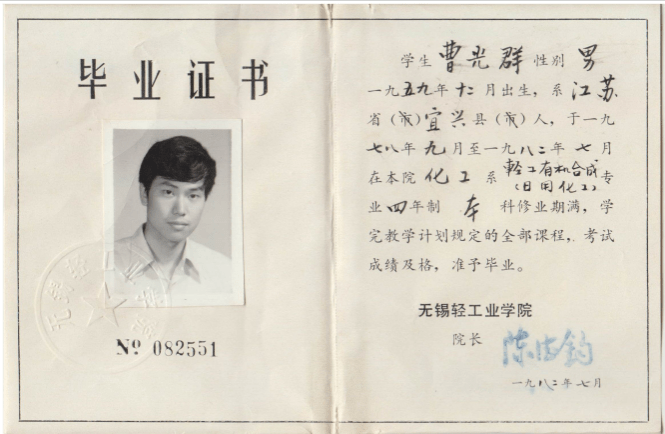 毕业证书
No 082551
学生 曹光群 性别 男
一九五九年十二月出生，系江苏
省（市）宜兴县（市）人，于一九
七八年九月至一九八二年七月
在本院 化工 系 轻工有机合成
（日用化工）专
业四年制 本 科修业期满，学
完教学计划规定的全部课程，考试
成绩及格，准予毕业。
无锡轻工业学院
院长
一九八二年七月